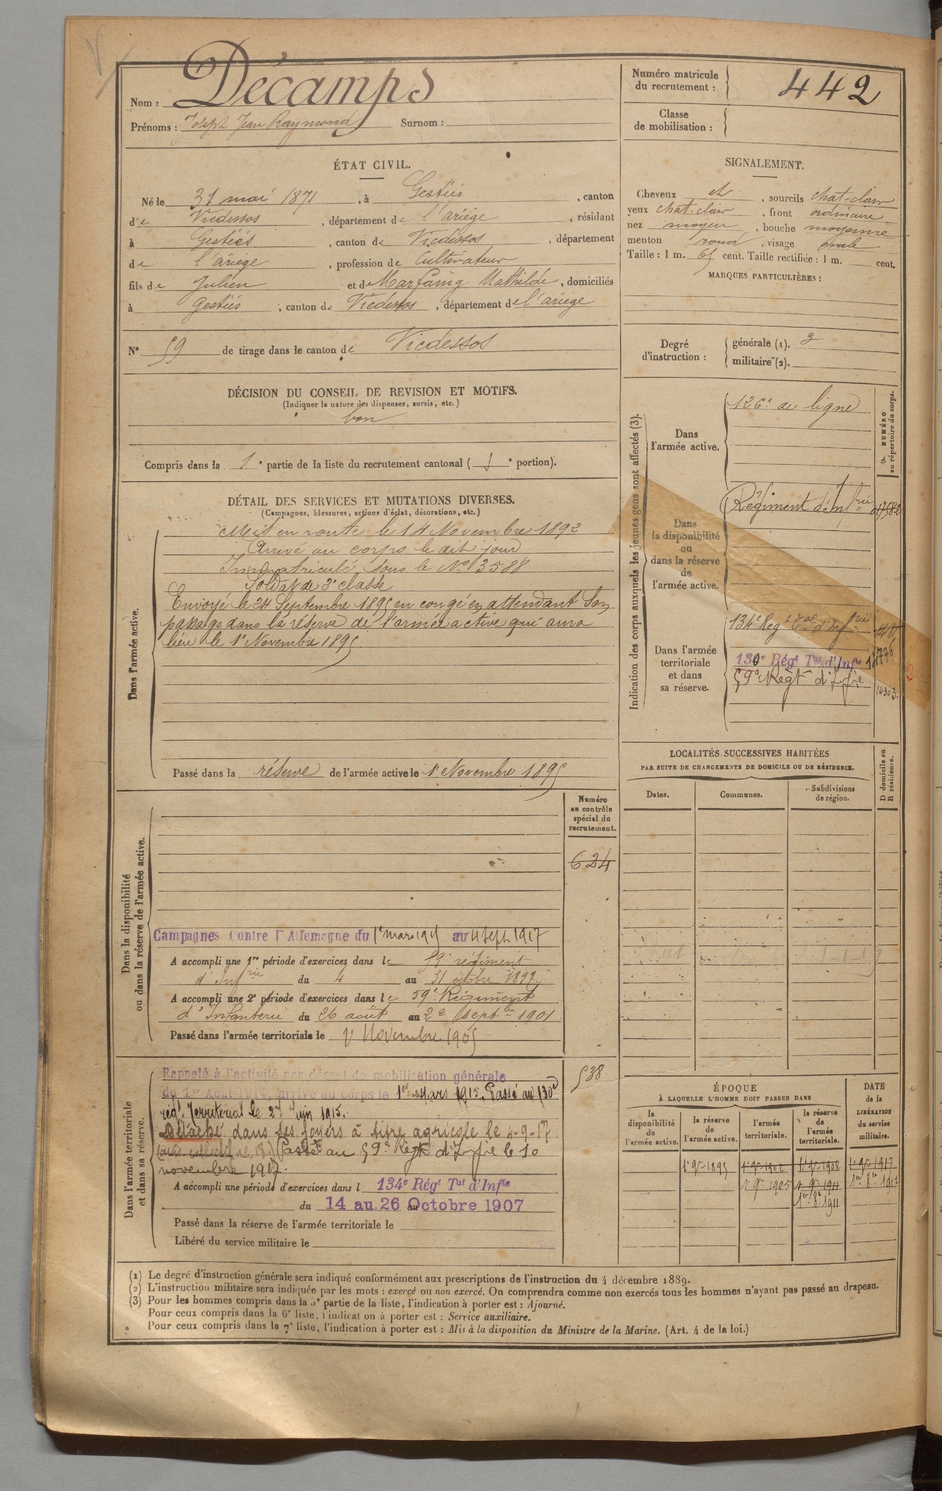 Nom : Décamps
Prénoms : Joseph Jean Raymond Surnom :
Numéro matricule du recrutement : 442
Classe de mobilisation :
ÉTAT CIVIL.
Né le 31 mai 1871, à Gestiès, canton
de Vicdessos, département de l'ariège, résidant
à Gestiès, canton de Vicdessos, département
de l'ariège, profession de Cultivateur
fils de Julien et de Marfaing Mathilde, domiciliés
à Gestiès, canton de Vicdessos, département de l'ariège
N° 59 de tirage dans le canton de Vicdessos
SIGNALEMENT.
Cheveux et, sourcils chat-clair
yeux chat-clair, front ordinaire
nez moyen, bouche moyenne
menton rond, visage ovale
Taille : 1 m. 65 cent. Taille rectifiée : 1 m. cent.
MARQUES PARTICULIÈRES :
Degré d'instruction : générale (1). 3
militaire (2).
DÉCISION DU CONSEIL DE REVISION ET MOTIFS.
(Indiquer la nature des dispenses, sursis, etc.)
bon
Compris dans la 1e partie de la liste du recrutement cantonal ( portion).
DÉTAIL DES SERVICES ET MUTATIONS DIVERSES.
(Campagnes, blessures, actions d'éclat, décorations, etc.)
Dans l'armée active.
Mis en route le 14 Novembre 1892
Arrivé au corps le dit jour
Immatriculé sous le No 3588
Soldat de 2e classe
Envoyé le 24 Septembre 1895 en congé en attendant son
passage dans la réserve de l'armée active qui aura
lieu le 1er Novembre 1895
Passé dans la réserve de l'armée active le 1er Novembre 1895
Indication des corps auxquels les jeunes gens sont affectés (3).
NUMÉRO au répertoire du corps.
Dans l'armée active.
126e de ligne
Dans la disponibilité ou dans la réserve de l'armée active.
Régiment d'Infrie
Dans l'armée territoriale et dans sa réserve.
134e Reg d'Infrie
130e Régt Tal d'Infie
59e Regt d'Infie
LOCALITÉS SUCCESSIVES HABITÉES
PAR SUITE DE CHANGEMENTS DE DOMICILE OU DE RÉSIDENCE.
Dates. Communes. Subdivisions de région. D domicile ou R résidence.
Dans la disponibilité ou dans la réserve de l'armée active.
Numéro au contrôle spécial du recrutement.
624
Campagnes Contre l'Allemagne du 1er mars 1915 au 4 Sept 1917
A accompli une 1re période d'exercices dans le 59e régiment
d'Infrie du 4 au 31 octobre 1898
A accompli une 2e période d'exercices dans le 59e Régiment
d'Infanterie du 26 août au 2 Septbre 1901
Passé dans l'armée territoriale le 1er Novembre 1905
Dans l'armée territoriale et dans sa réserve.
538
Rappelé à l'activité par décret de mobilisation générale
du 1er Août 1914, arrivé au corps le 1er Mars 1915. Passé au 130e
régt Territorial le 27 Juin 1915.
Détaché dans ses foyers à titre agricole le 4-9-17.
Passé au 59e Regt d'Infie le 10
novembre 1917.
A accompli une période d'exercices dans l 134e Régt Tal d'Infie
du 14 au 26 Octobre 1907
Passé dans la réserve de l'armée territoriale le
Libéré du service militaire le
ÉPOQUE
À LAQUELLE L'HOMME DOIT PASSER DANS
la disponibilité de l'armée active. la réserve de l'armée active. l'armée territoriale. la réserve de l'armée territoriale.
DATE de la LIBÉRATION du service militaire.
1er 9bre 1895
1er 9bre 1905
(1) Le degré d'instruction générale sera indiqué conformément aux prescriptions de l'instruction du 4 décembre 1889.
(2) L'instruction militaire sera indiquée par les mots : exercé ou non exercé. On comprendra comme non exercés tous les hommes n'ayant pas passé au drapeau.
(3) Pour les hommes compris dans la 5e partie de la liste, l'indication à porter est : Ajourné.
Pour ceux compris dans la 6e liste, l'indication à porter est : Service auxiliaire.
Pour ceux compris dans la 7e liste, l'indication à porter est : Mis à la disposition du Ministre de la Marine. (Art. 4 de la loi.)